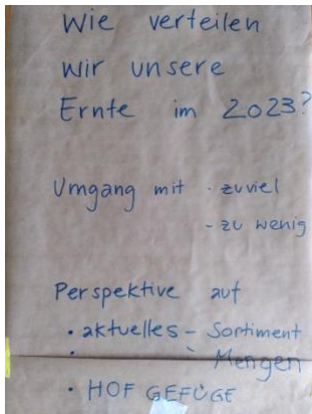 Wie verteilen
wir unsere
Ernte im 2023?
Umgang mit · zuviel
- zu wenig
Perspektive auf
• aktuelles - Sortiment
• - Mengen
• HOF GEFÜGE